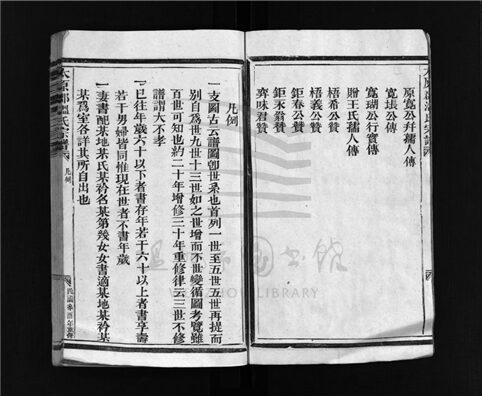 太原郡溫氏宗譜
原寬公弁孺人傳
寬垠公傳
寬瑚公行實傳
贈王氏孺人傳
梧希公贊
梧義公贊
鉅春公贊
鉅永翁贊
齊味君贊
凡例
一支圖古云譜圖卽世系也首列一世至五世五世再提而
別自爲世九世十三世如之世增而不世變循圖考覽雖
百世可知也約二十年增修三十年重修律云三世不修
譜謂大不孝
一已往年歲六十以下者書存年若干六十以上者書享壽
若干男婦皆同惟現在世者不書年歲
一妻書配某地某氏某矜名某第幾女女書適某地某矜某
某爲室各詳其所自出也
太原郡溫氏宗譜
凡例
LIBRARY